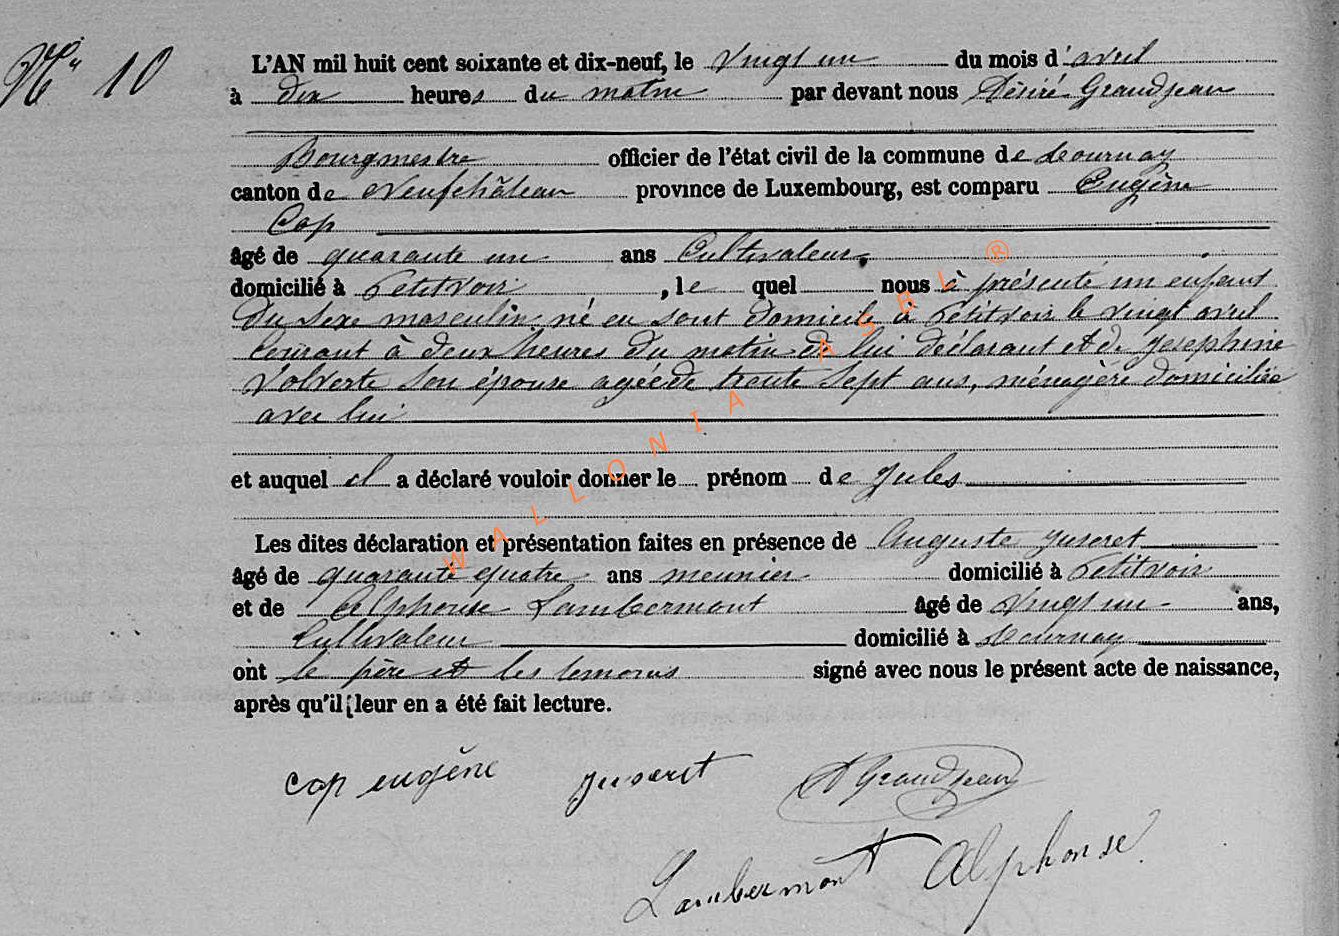 N° 10
L'AN mil huit cent soixante et dix-neuf, le vingt un du mois d'avril
à dix heures du matin par devant nous Désiré Grandjean
Bourgmestre officier de l'état civil de la commune de Tournay
canton de Neufchâteau province de Luxembourg, est comparu Eugène
Cop
âgé de quarante un ans Cultivateur,
domicilié à Petitvoir, le quel nous à présenté un enfant
du sexe masculin né en sont domicile à Petitvoir le vingt avril
courant à deux heures du matin de lui déclarant et de Josephine
son épouse agée de trente sept ans, ménagère domiciliée
avec lui
et auquel il a déclaré vouloir donner le prénom de Jules
Les dites déclaration et présentation faites en présence de Auguste Juseret
âgé de quarante quatre ans meunier domicilié à Petitvoir
et de Alphonse Lambermont âgé de vingt un ans,
Cultivateur domicilié à Tournay
ont le père et les temoins signé avec nous le présent acte de naissance,
après qu'il leur en a été fait lecture.
Cop eugène Juseret D Grandjean
Lambermont Alphonse
WALLONIA ASBL ®